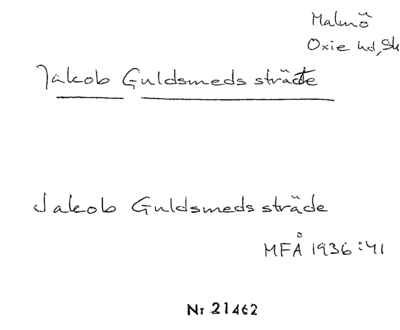 Malmö
Oxie hd, Sk
Jakob Guldsmeds sträte
Jakob Guldsmeds sträde
MFÅ 1936:41
Nr 21462